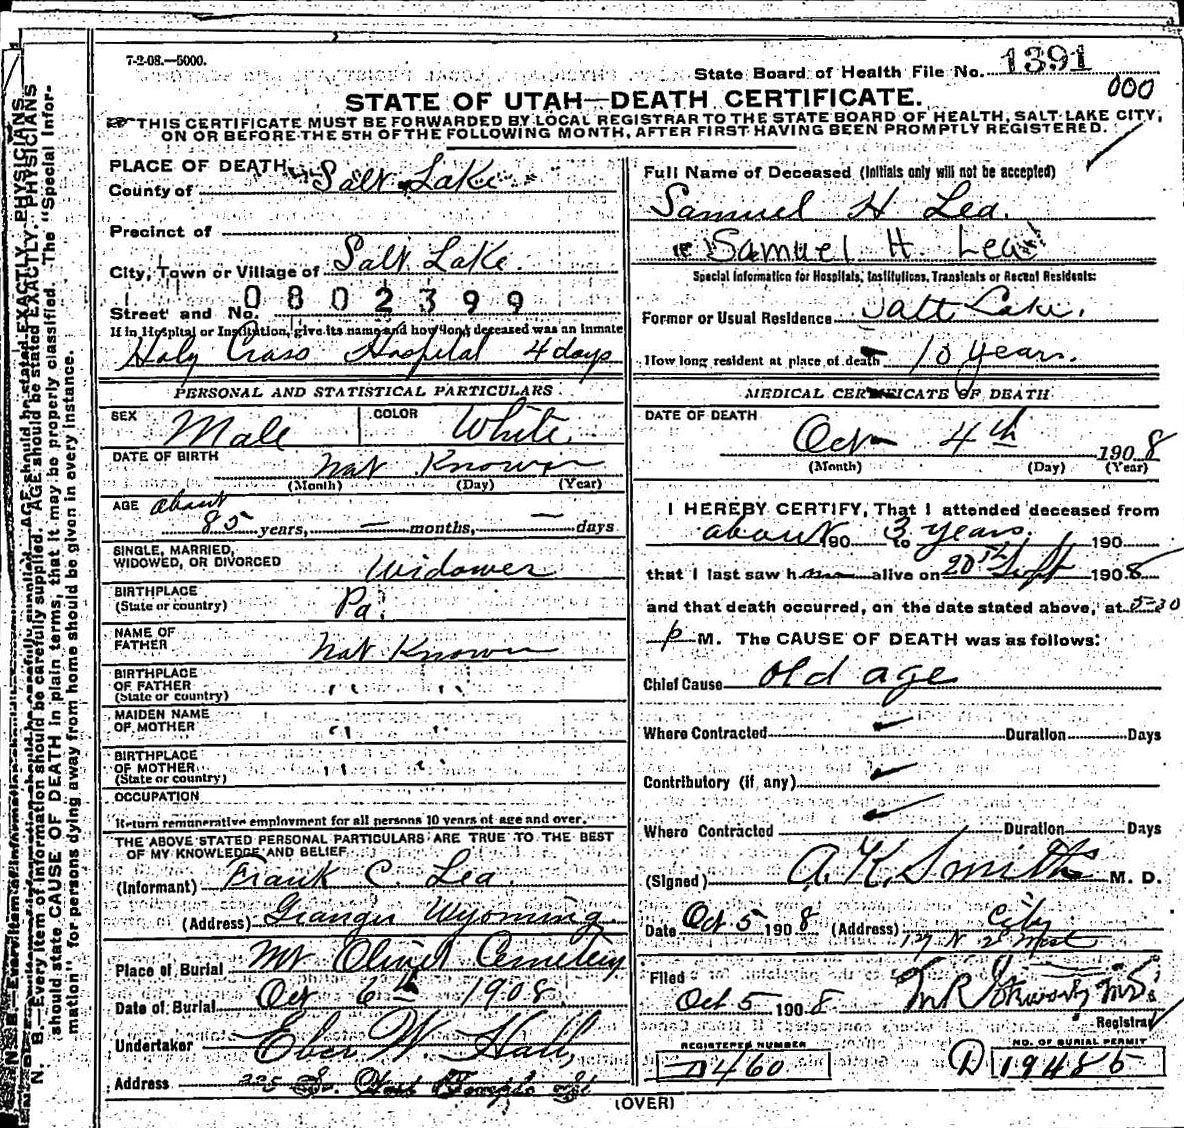 7-2-08.—5000.
State Board of Health File No. 1391
000
STATE OF UTAH—DEATH CERTIFICATE.
THIS CERTIFICATE MUST BE FORWARDED BY LOCAL REGISTRAR TO THE STATE BOARD OF HEALTH, SALT LAKE CITY,
ON OR BEFORE THE 5TH OF THE FOLLOWING MONTH, AFTER FIRST HAVING BEEN PROMPTLY REGISTERED.
PLACE OF DEATH
County of Salt Lake
Precinct of
City, Town or Village of Salt Lake.
Street and No. 0802399
If in Hospital or Institution, give its name and how long deceased was an inmate
Holy Cross Hospital 4 days
PERSONAL AND STATISTICAL PARTICULARS
SEX Male COLOR White
DATE OF BIRTH Not Known
(Month) (Day) (Year)
AGE about
85 years, — months, — days
SINGLE, MARRIED,
WIDOWED, OR DIVORCED Widower
BIRTHPLACE
(State or country) Pa.
NAME OF
FATHER Not Known
BIRTHPLACE
OF FATHER " "
(State or country)
MAIDEN NAME
OF MOTHER " "
BIRTHPLACE
OF MOTHER " "
(State or country)
OCCUPATION
Return remunerative employment for all persons 10 years of age and over.
THE ABOVE STATED PERSONAL PARTICULARS ARE TRUE TO THE BEST
OF MY KNOWLEDGE AND BELIEF
(Informant) Frank C. Lea.
(Address) Granger Wyoming
Place of Burial Mt Olivet Cemetery
Date of Burial Oct 6th 1908.
Undertaker Eber W. Hall,
Address 225 So. West Temple St
Full Name of Deceased (Initials only will not be accepted)
Samuel H Lea.
Samuel H. Lea
Special Information for Hospitals, Institutions, Transients or Recent Residents:
Former or Usual Residence Salt Lake.
How long resident at place of death 10 years.
MEDICAL CERTIFICATE OF DEATH
DATE OF DEATH
Oct 4th 1908
(Month) (Day) (Year)
I HEREBY CERTIFY, That I attended deceased from
about 190 to 3 years, 190
that I last saw him alive on 20th Sept 1908
and that death occurred, on the date stated above, at 5-30
p M. The CAUSE OF DEATH was as follows:
Chief Cause old age
Where Contracted Duration Days
Contributory (if any)
Where Contracted Duration Days
(Signed) A. K. Smith M. D.
Date Oct 5 1908 (Address) City
127 N 2nd West
Filed
Oct 5 1908
Registrar
REGISTERED NUMBER
D460
NO. OF BURIAL PERMIT
D 19485
(OVER)
N. B.—Every item of information should be carefully supplied. AGE should be stated EXACTLY. PHYSICIANS
should state CAUSE OF DEATH in plain terms, that it may be properly classified. The "Special Infor-
mation" for persons dying away from home should be given in every instance.